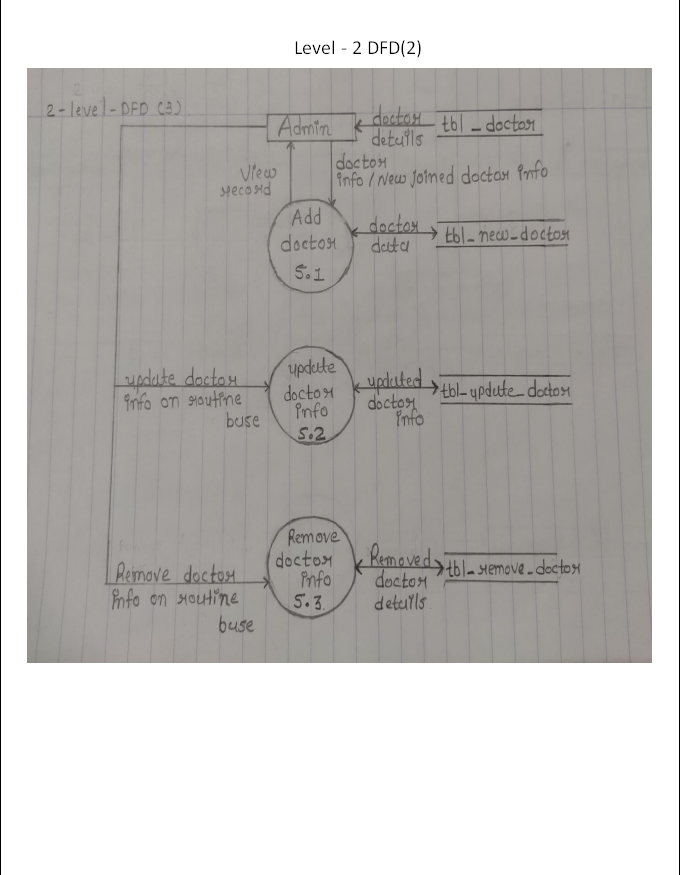 Level - 2 DFD(2)
2-level-DFD (3)
Admin
doctor
details
tbl_doctor
View
record
doctor
info / New joined doctor info
Add
doctor
5.1
doctor
data
tbl_new_doctor
update doctor
info on routine
buse
update
doctor
info
5.2
updated
doctor
info
tbl_update_doctor
Remove doctor
info on routine
buse
Remove
doctor
info
5.3
Removed
doctor
details
tbl_remove_doctor